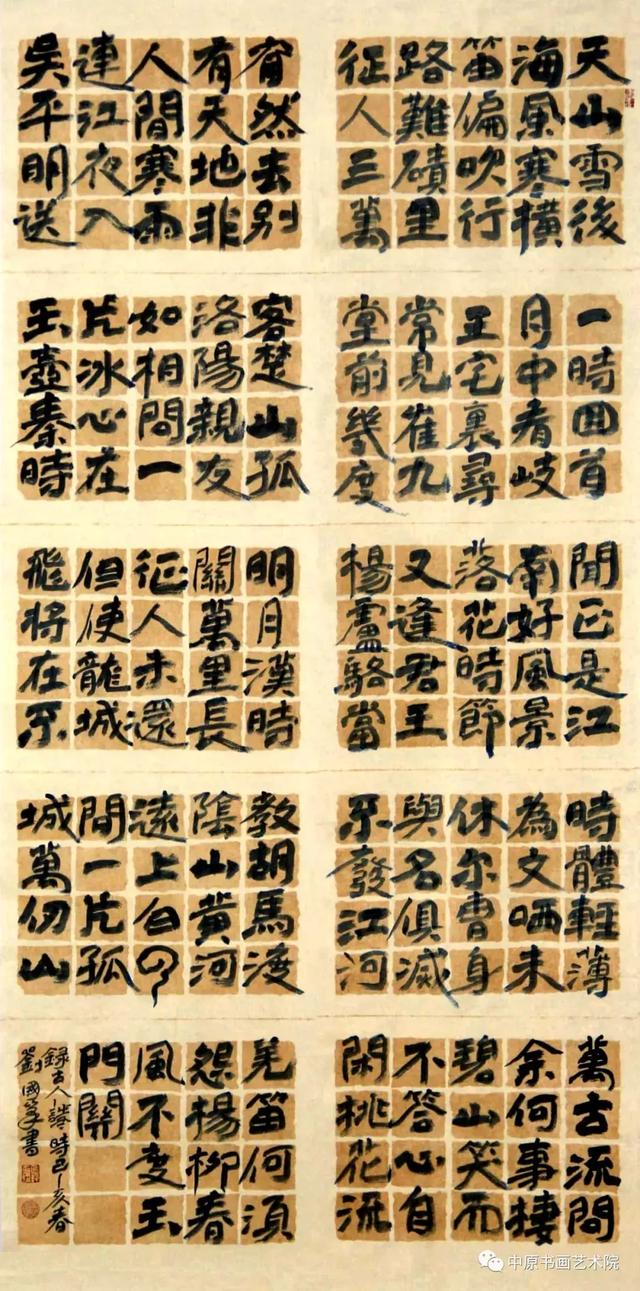 天山雪後
海風寒橫
笛偏吹行
路難磧里
征人三萬
一時回首
月中看岐
王宅裏尋
常見崔九
堂前幾度
聞正是江
南好風景
落花時節
又逢君王
楊盧駱當
時體輕薄
為文哂未
休尔曹身
與名俱滅
不廢江河
萬古流問
余何事棲
碧山笑而
不答心自
閑桃花流
窅然去别
有天地非
人間寒雨
連江夜入
吴平明送
客楚山孤
洛陽親友
如相問一
片冰心在
玉壺秦時
明月漢時
關萬里長
征人未還
但使龍城
飛將在不
教胡馬渡
陰山黄河
遠上白雲
間一片孤
城萬仞山
羌笛何須
怨楊柳春
風不度玉
門關
録古人詩時己亥春
劉國書
中原书画艺术院